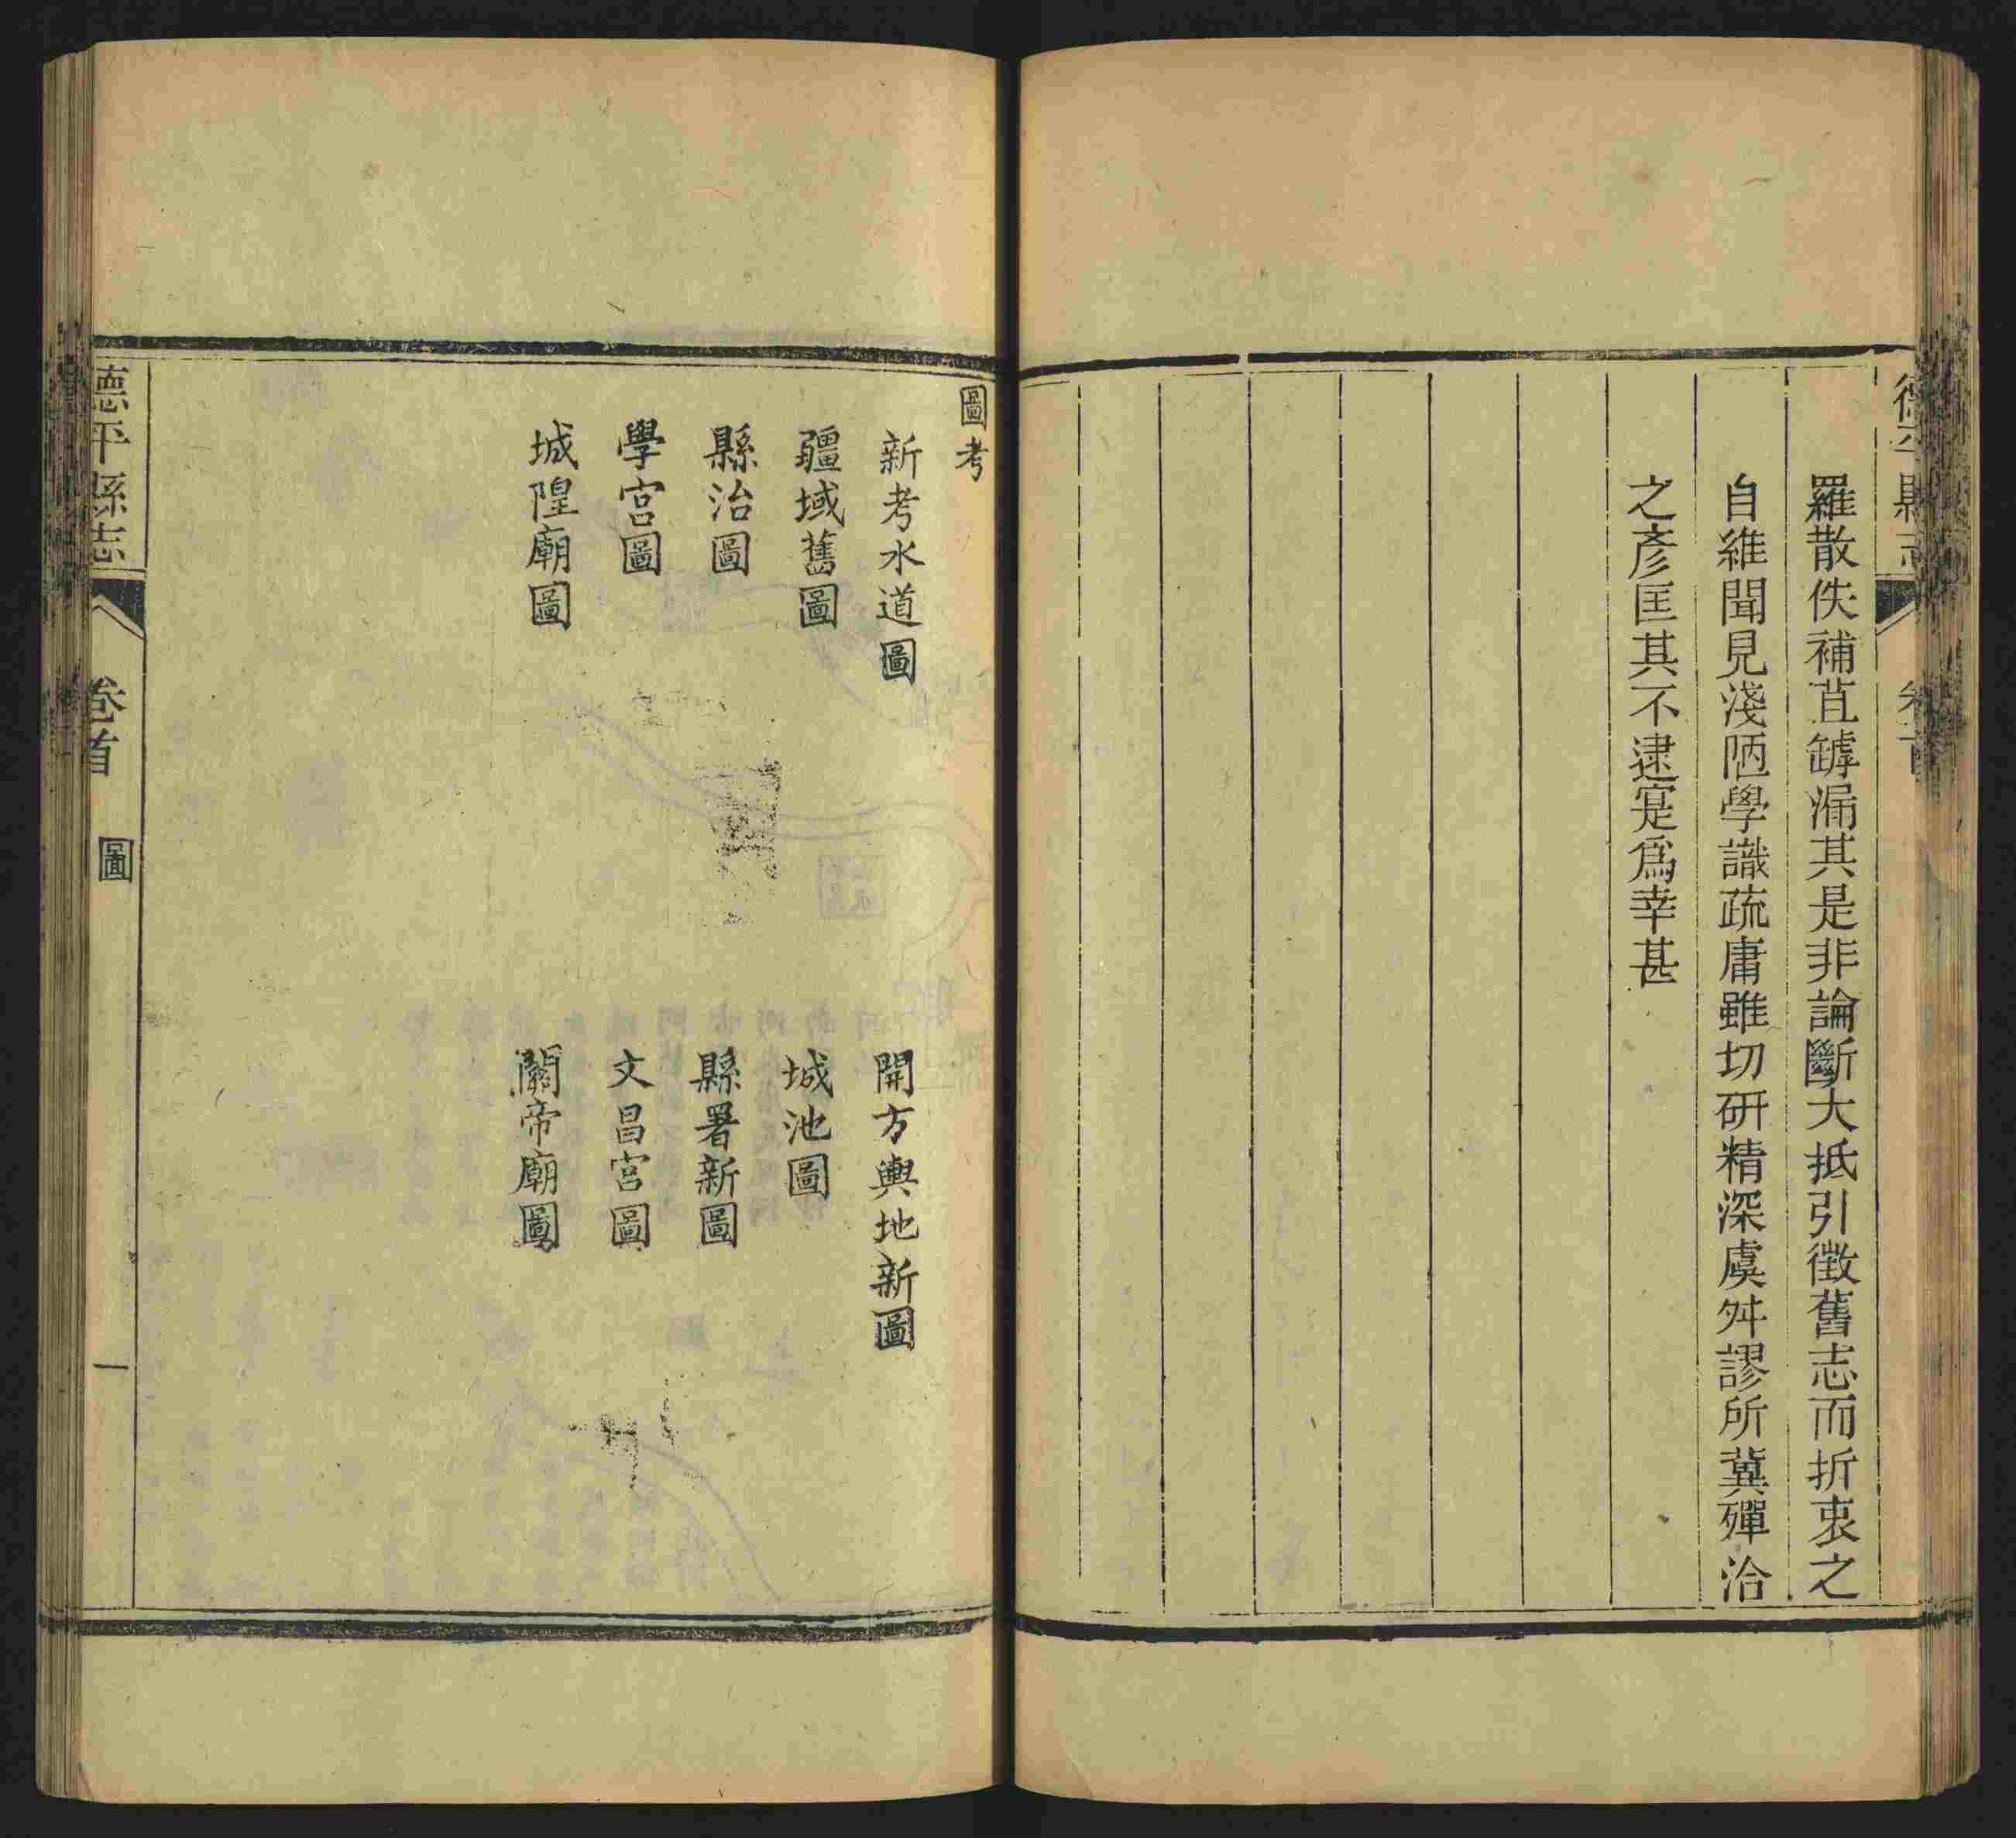 德平縣志
卷首
羅散佚補苴罅漏其是非論斷大抵引徵舊志而折衷之
自維聞見淺陋學識疏庸雖切研精深虞舛謬所冀殫洽
之彥匡其不逮寔爲幸甚
圖考
新考水道圖
開方輿地新圖
疆域舊圖
城池圖
縣治圖
縣署新圖
學宮圖
文昌宮圖
城隍廟圖
關帝廟圖
德平縣志
卷首
圖
一